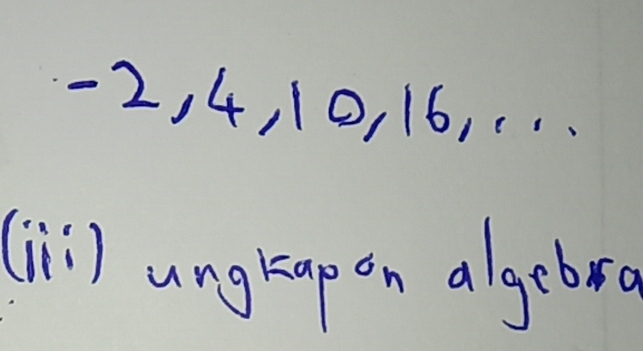 -2, 4, 10, 16, ...
(iii) ungkapan algebra